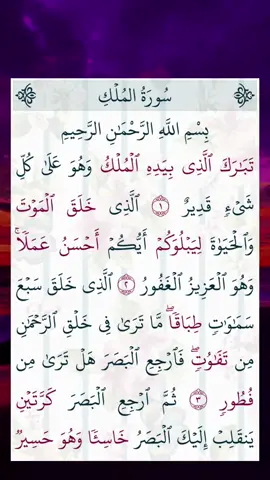 سُورَةُ المُلْكِ
بِسْمِ اللَّهِ الرَّحْمَٰنِ الرَّحِيمِ
تَبَارَكَ ٱلَّذِى بِيَدِهِ ٱلْمُلْكُ وَهُوَ عَلَىٰ كُلِّ
شَىْءٍ قَدِيرٌ ١ ٱلَّذِى خَلَقَ ٱلْمَوْتَ
وَالْحَيَوٰةَ لِيَبْلُوَكُمْ أَيُّكُمْ أَحْسَنُ عَمَلًاۚ
وَهُوَ ٱلْعَزِيزُ ٱلْغَفُورُ ٢ ٱلَّذِى خَلَقَ سَبْعَ
سَمَٰوَٰتٍ طِبَاقًاۖ مَّا تَرَىٰ فِى خَلْقِ ٱلرَّحْمَٰنِ
مِن تَفَٰوُتٍۖ فَٱرْجِعِ ٱلْبَصَرَ هَلْ تَرَىٰ مِن
فُطُورٍ ٣ ثُمَّ ٱرْجِعِ ٱلْبَصَرَ كَرَّتَيْنِ
يَنقَلِبْ إِلَيْكَ ٱلْبَصَرُ خَاسِئًا وَهُوَ حَسِيرٌ